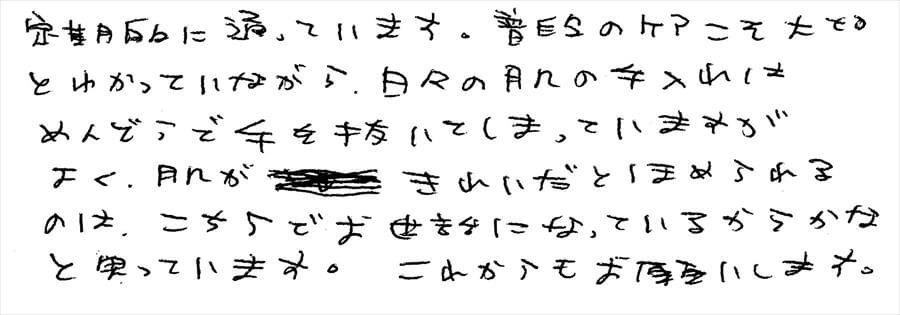 定期的に通っています。普段のケアこそ大切
とわかっていながら、日々の肌の手入れは
めんどうで手を抜いてしまっていますが
よく、肌が きれいだとほめられる
のは、こちらでお世話になっているからかな
と思っています。これからもお願いします。